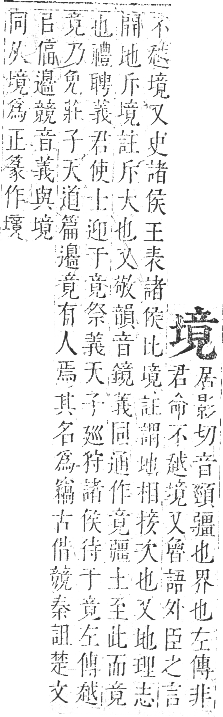 境
居影切音頸疆也界也左傳非
君命不越境又魯語外臣之言
不越境又史諸侯王表諸侯比境註謂地相接次也又地理志
開地斥境註斥大也又敬韻音鏡義同通作竟疆土至此而竟
也禮聘義君使士迎于竟祭義天子廵狩諸侯待于竟左傳越
竟乃免莊子天道篇邉竟有人焉其名爲竊古借競秦詛楚文
㠯偪邉競音義與境
同从境爲正篆作